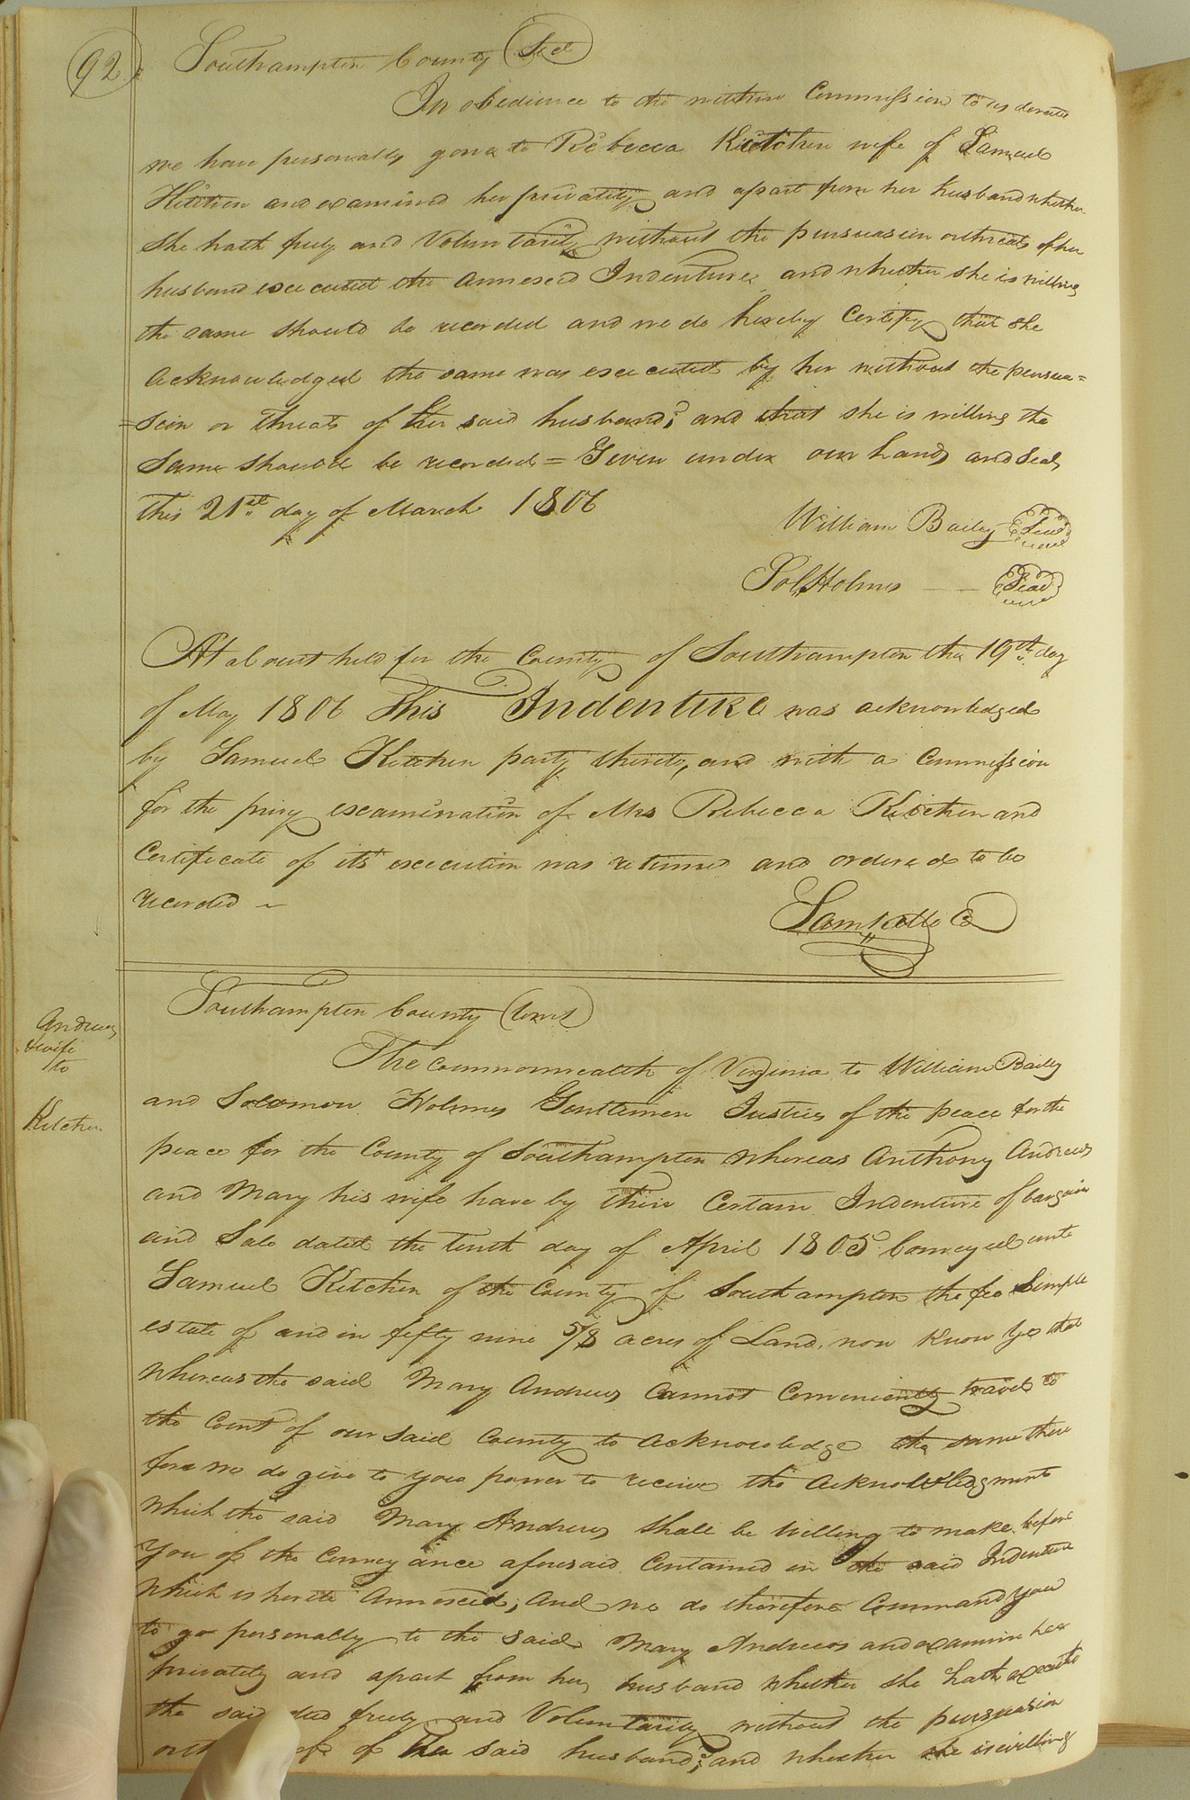 92
Southampton County Sct
In obedience to the within Commission to us directed
we have personally gone to Rebecca Kitchen wife of Samuel
Kitchen and examined her privately and apart from her husband whether
She hath freely and Voluntarily without the persuasion or threats of her
husband executed the annexed Indenture and whether she is willing
the same should be recorded and we do hereby Certify that she
acknowledged the same was executed by her without the persua=
=sion or threats of her said husband; and that she is willing the
Same should be recorded = Given under our hands and Seals
this 21st day of March 1806
William Bailey Seal
Sol Holmes Seal
At a Court held for the County of Southampton the 19th day
of May 1806 This Indenture was acknowledged
by Samuel Kitchen party thereto, and with a Commission
for the privy examination of Mrs Rebecca Kitchen and
Certificate of its execution was returned and ordered to be
recorded
Saml Kello C
Andrews
& wife
to
Kitchen
Southampton County (towit)
The commonwealth of Virginia to William Bailey
and Solomon Holmes Gentlemen Justices of the peace for the
peace for the County of Southampton Whereas Anthony Andrews
and Mary his wife have by their Certain Indenture of bargain
and Sale dated the tenth day of April 1805 Conveyed unto
Samuel Kitchen of the County of Southampton the fee Simple
estate of and in fifty nine 5/8 acres of Land, now Know Ye that
whereas the said Mary Andrews Cannot Conveniently travel to
the Court of our said County to acknowledge the same there
fore we do give to you power to receive the acknowledgment
which the said Mary Andrews shall be willing to make before
You of the Conveyance aforesaid Contained in the said Indenture
which is hereto Annexed; And we do therefore Command you
to go personally to the said Mary Andrews and examine her
privately and apart from her husband whether she hath executed
the said deed freely and Voluntarily without the persuasion
or of her said husband; and whether she is willing